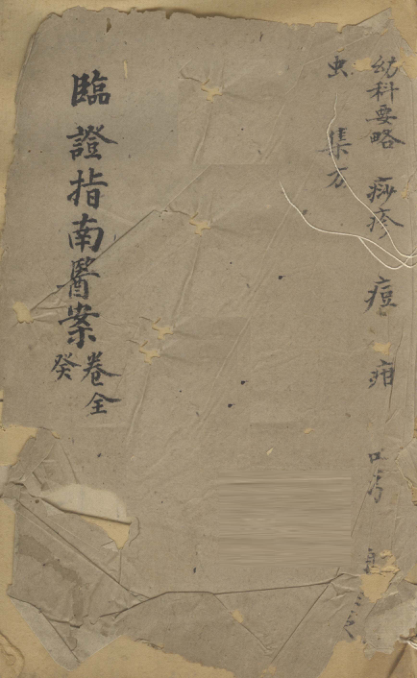 幼科要略 痧疹 痘 疳 口
虫 集方
臨證指南醫案
卷全
癸